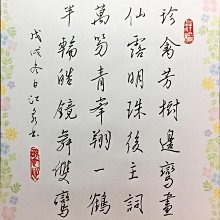 珍禽芳樹邊鸞畫
仙露明珠後主詞
萬笏青峯翔一鶴
半輪皓鏡舞雙鸞
戊戌冬日江